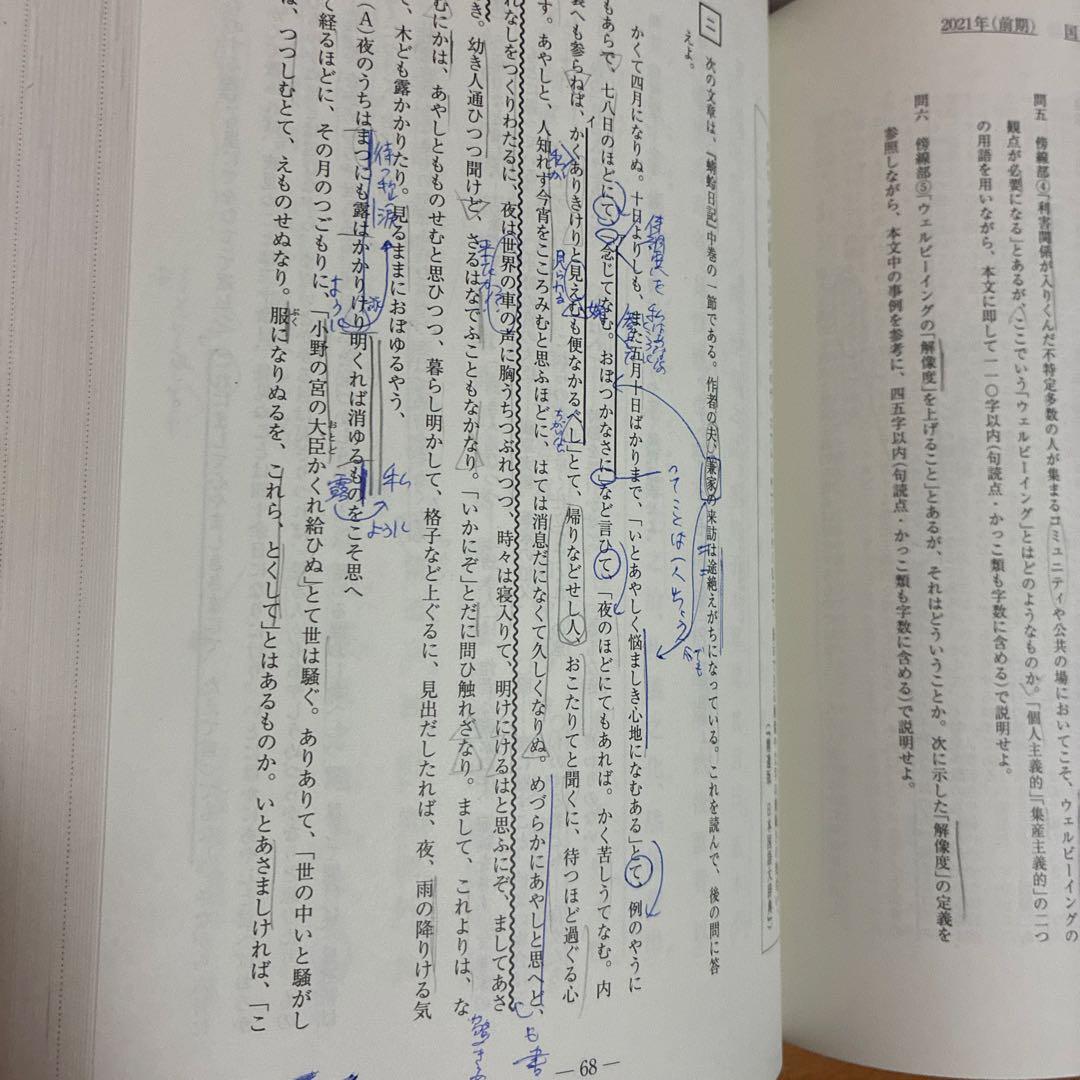 2021年(前期) 国
問五 傍線部④「利害関係が入りくんだ不特定多数の人が集まるコミュニティや公共の場においてこそ、ウェルビーイングの
観点が必要になる」とあるが、ここでいう「ウェルビーイング」とはどのようなものか。「個人主義的」「集産主義的」の二つ
の用語を用いながら、本文に即して一一〇字以内(句読点・かっこ類も字数に含める)で説明せよ。
問六 傍線部⑤「ウェルビーイングの「解像度」を上げること」とあるが、それはどういうことか。次に示した「解像度」の定義を
参照しながら、本文中の事例を参考に、四五字以内(句読点・かっこ類も字数に含める)で説明せよ。
二 次の文章は、『蜻蛉日記』中巻の一節である。作者の夫、兼家の来訪は途絶えがちになっている。これを読んで、後の問に答
えよ。
かくて四月になりぬ。十日よりしも、また五月十日ばかりまで、「いとあやしく悩ましき心地になむある」とて、例のやうに
もあらで、七八日のほどにて、「念じてなむ。おぼつかなさに」など言ひて、「夜のほどにてもあれば。かく苦しうてなむ。内
裏へも参らねば、かくありきけりと見えむも便なかるべし」とて、帰りなどせし人、おこたりてと聞くに、待つほど過ぐる心
す。あやしと、人知れず今宵をこころみむと思ふほどに、はては消息だになくて久しくなりぬ。めづらかにあやしと思へど、
れなしをつくりわたるに、夜は世界の車の声に胸うちつぶれつつ、時々は寝入りて、明けにけるはと思ふにぞ、ましてあさ
き。幼き人通ひつつ聞けど、さるはなでふこともなかなり。「いかにぞ」とだに問ひ触れざなり。まして、これよりは、な
むにかは、あやしともものせむと思ひつつ、暮らし明かして、格子など上ぐるに、見出だしたれば、夜、雨の降りける気
て、木ども露かかりたり。見るままにおぼゆるやう、
(A)夜のうちはまつにも露はかかりけり明くれば消ゆるものをこそ思へ
て経るほどに、その月のつごもりに、「小野の宮の大臣かくれ給ひぬ」とて世は騒ぐ。ありありて、「世の中いと騒がし
ば、つつしむとて、えものせぬなり。服になりぬるを、これら、とくして」とはあるものか。いとあさましければ、「こ
イ
おとど
ぶく
涙
ように
露
私
ように
見られる
ってことは
でも
— 68 —